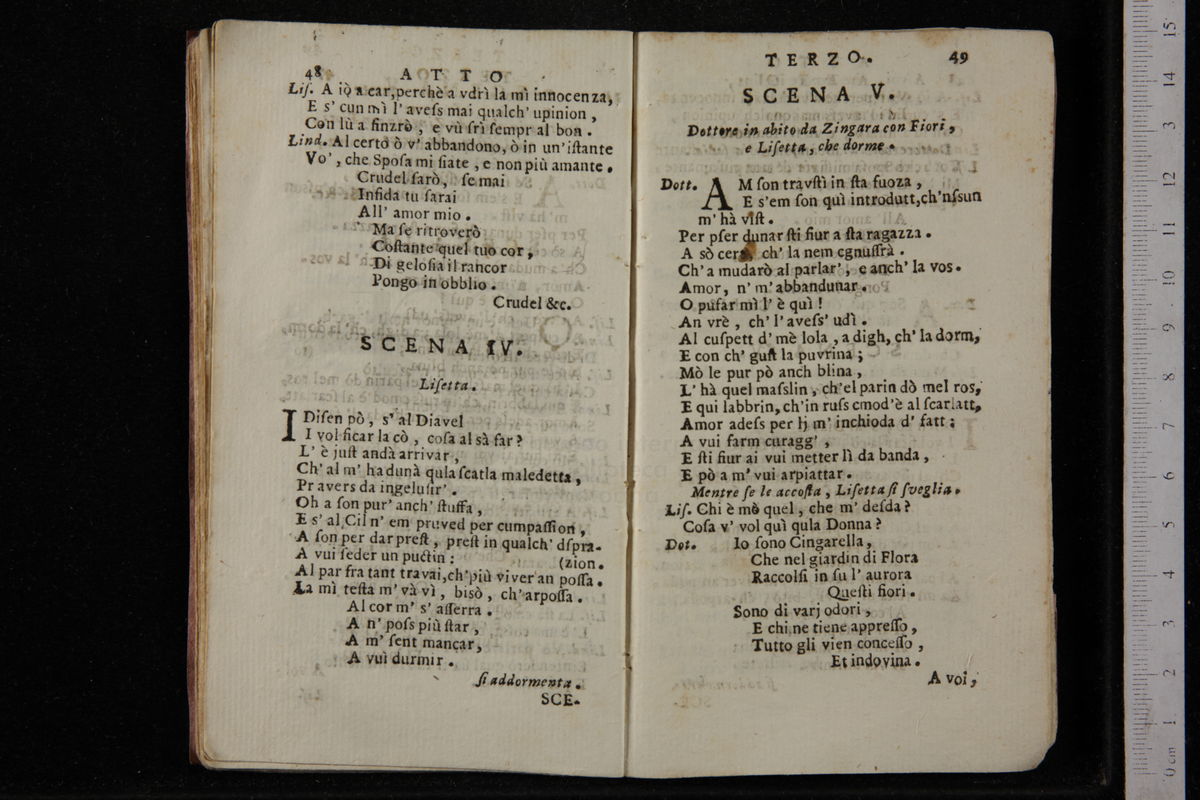 48 ATTO
Lis. A iò a car, perchè a vdrì la mì innocenza,
E s' cun mì l' avess mai qualch' upinion,
Con lù a finzrò, e vù srì sempr al bon.
Lind. Al certo ò v' abbandono, ò in un' istante
Vo', che Sposa mi siate, e non più amante.
Crudel sarò, se mai
Infida tu sarai
All' amor mio.
Ma se ritroverò
Costante quel tuo cor,
Di gelosia il rancor
Pongo in obblio.
Crudel &c.
SCENA IV.
Lisetta.
I Disen pò, s' al Diavel
I vol ficar la cò, cosa al sà far?
L' è just andà arrivar,
Ch' al m' ha dunà qula scatla maledetta,
Pr avers da ingelusir'.
Oh a son pur' anch' stuffa,
E s' al Cil n' em pruved per cumpassion,
A son per dar prest, prest in qualch' dspra-
A vui seder un puctin: (zion.
Al par fra tant travai, ch' più viver an possa.
La mì testa m' và vì, bisò, ch' arpossa.
Al cor m' s' asserra.
A n' poss più star,
A m' sent mancar,
A vui durmir.
si addormenta.
SCE-
TERZO. 49
SCENA V.
Dottore in abito da Zingara con Fiori,
e Lisetta, che dorme.
Dott. AM son travstì in sta fuoza,
E s'em son quì introdutt, ch'nssun
m' hà vist.
Per pser dunar sti fiur a sta ragazza.
A sò cert, ch' la nem cgnussrà.
Ch' a mudarò al parlar', e anch' la vos.
Amor, n' m' abbandunar.
O pufar mì l' è quì!
An vrè, ch' l' avess' udì.
Al cuspett d' mè lola, a digh, ch' la dorm,
E con ch' gust la puvrina;
Mò le pur pò anch blina,
L' hà quel masslin, ch'el parin dò mel ros,
E qui labbrin, ch'in russ cmod'è al scarlatt,
Amor adess per lj m' inchioda d' fatt;
A vui farm curagg',
E sti fiur ai vui metter lì da banda,
E pò a m' vui arpiattar.
Mentre se le accosta, Lisetta si sveglia.
Lis. Chi è mò quel, che m' desda?
Cosa v' vol quì qula Donna?
Dot. Io sono Cingarella,
Che nel giardin di Flora
Raccolsi in su l' aurora
Questi fiori.
Sono di varj odori,
E chi ne tiene appresso,
Tutto gli vien concesso,
Et indovina.
A voi,